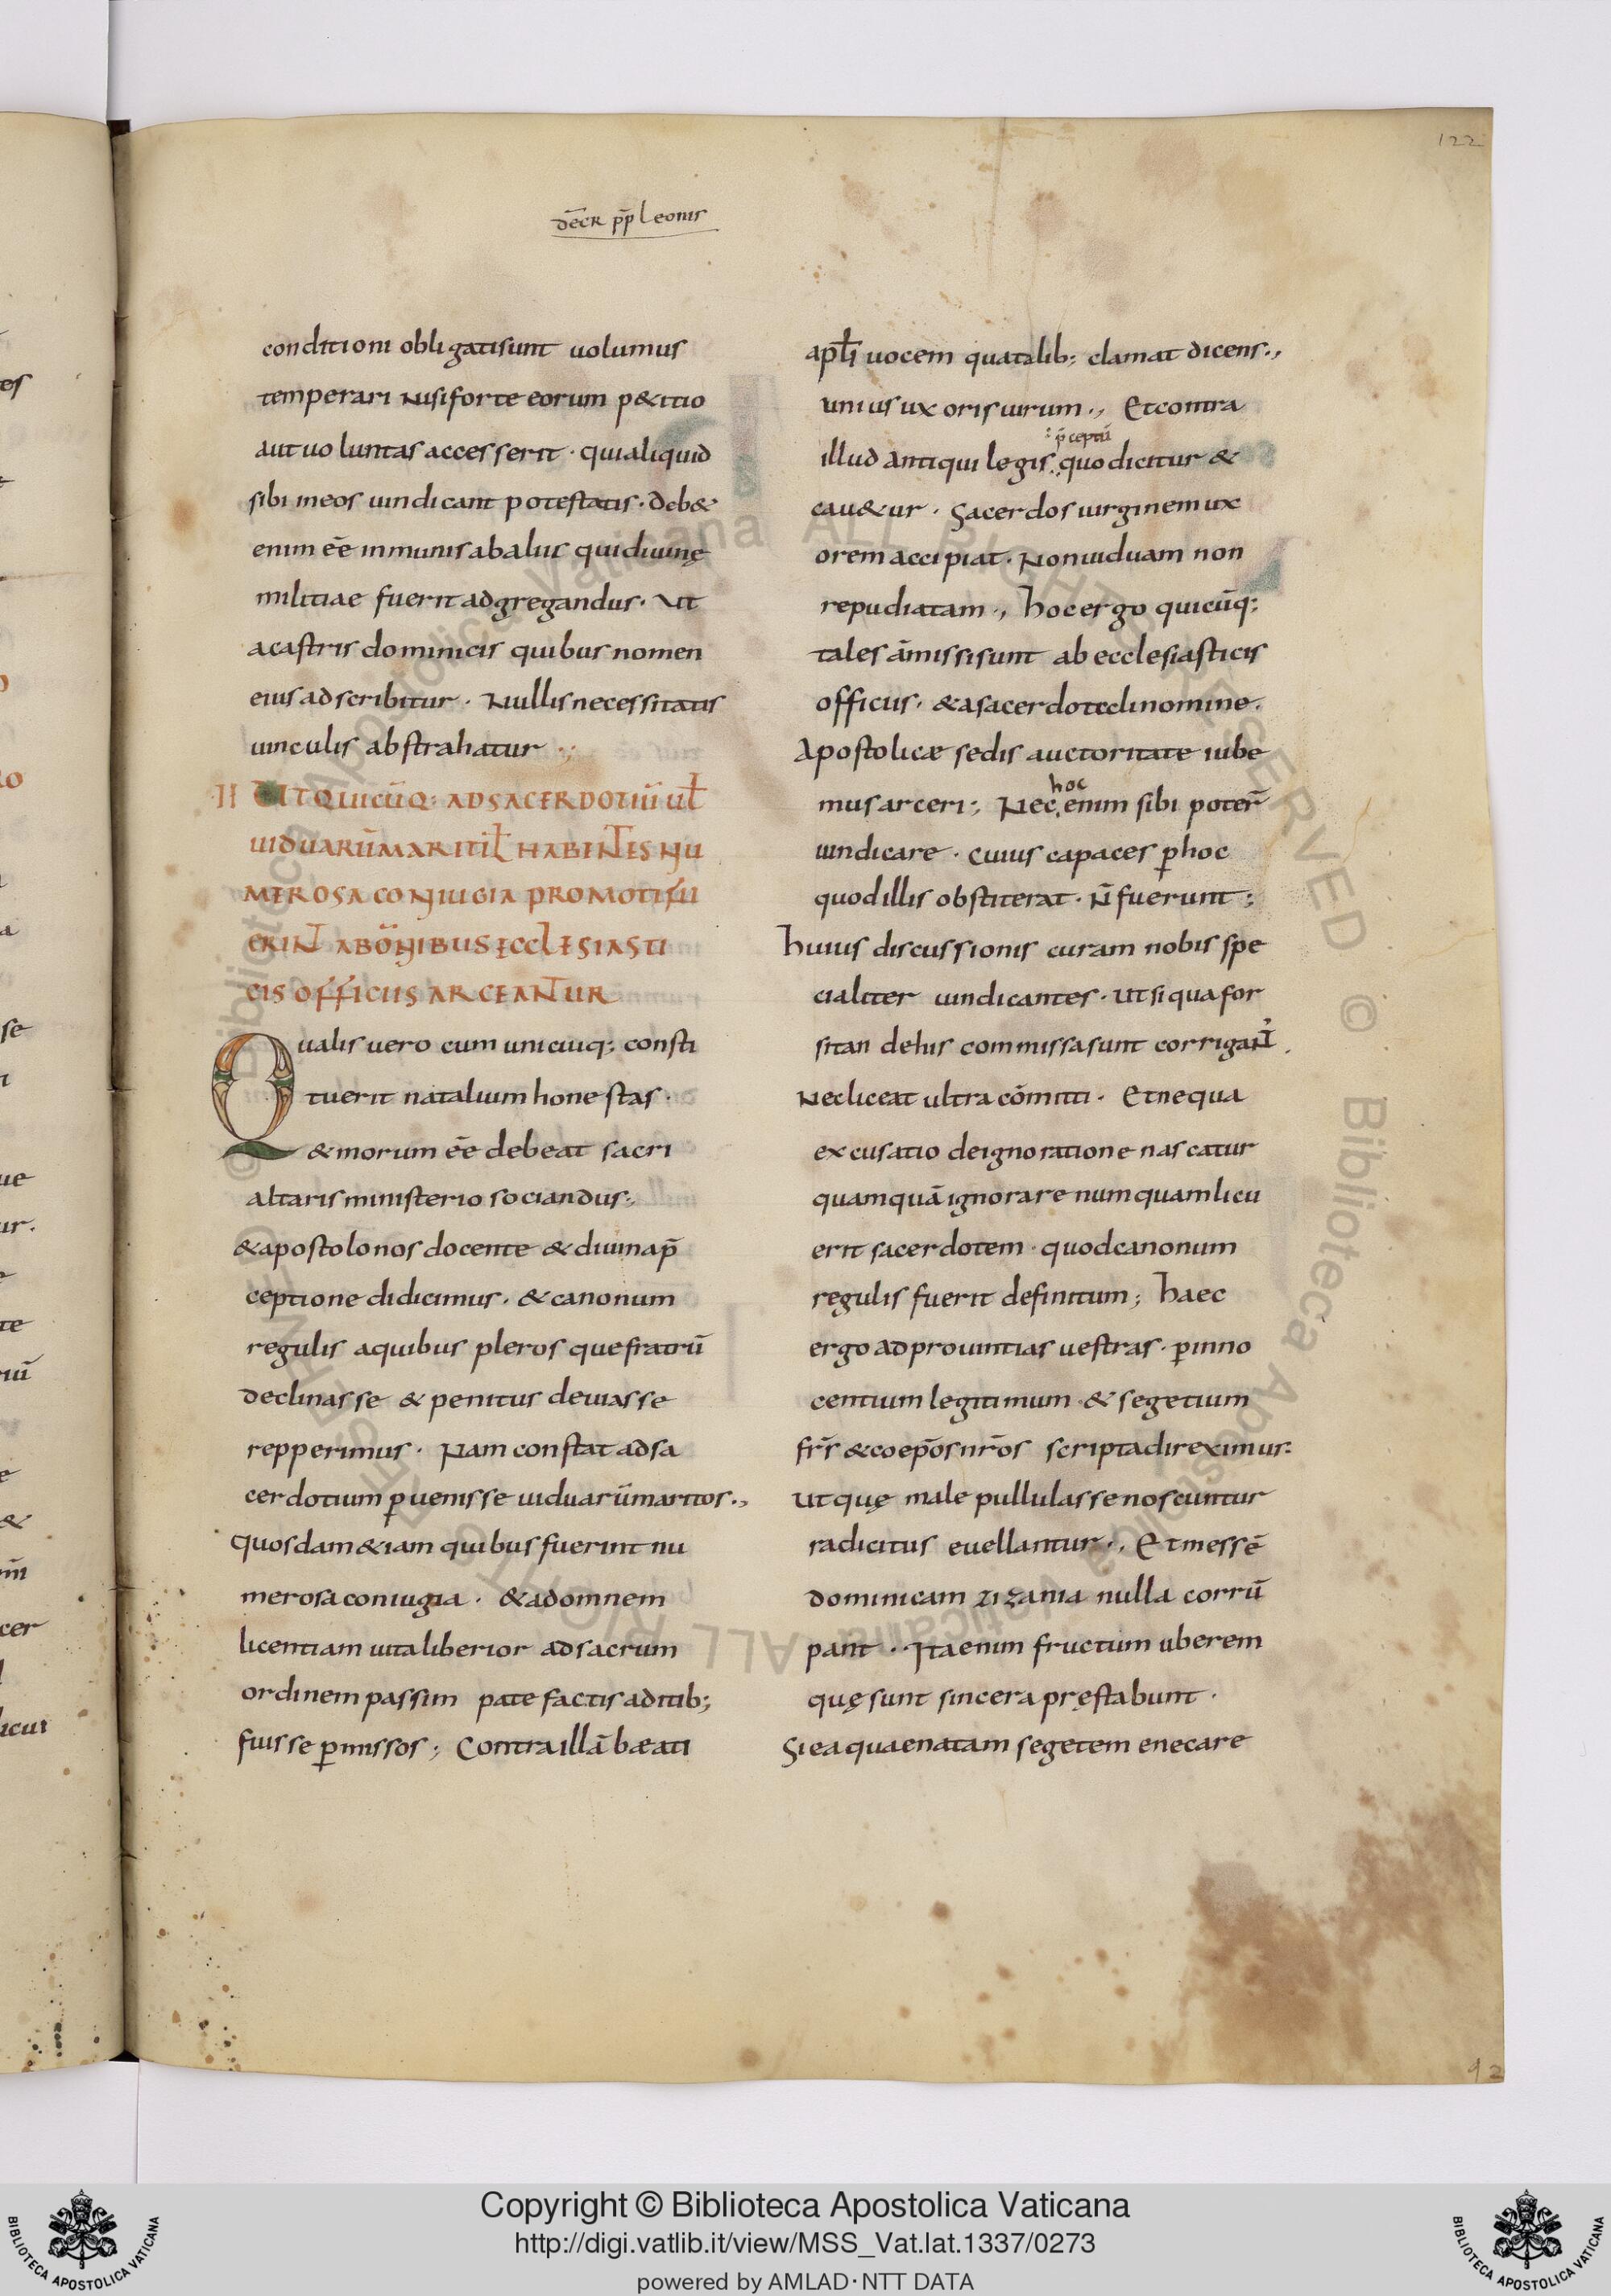 122
dēcr pp̄ Leonis
conditioni obligatisunt uolumus
temperari Nisiforte eorum p&itio
aut uoluntas accesserit · quialiquid
sibi ineos uindicant potestatis · deb&
enim ēē inmunis abaliis quidiuinę
militiae fuerit adgregandus · Ut
acastris dominicis quibus nomen
eius adscribitur · Nullis necessitatis
uinculis abstrahatur ·;
II UT QUICŪQ: AD SACERDOTIŪ UŁ
UIDUARŪ MARITI Ł HABENTES NU
MEROSA CONIUGIA PROMOTI FU
ERINT AB ŌNIBUS ECCLESIASTI
CIS OFFICIIS ARCEANTUR
Qualis uero cum unicuiq; consti
tuerit natalium honestas ·
& morum ēē debeat sacri
altaris ministerio sociandus;
& apostolo nos docente & diuina p̄
ceptione didicimus · & canonum
regulis aquibus pleros que fratrū
declinasse & penitus deuiasse
repperimus · Nam constat adsa
cerdotium puenisse uiduarū maritos .,
quosdam &iam quibus fuerint nu
merosa coniugia · & ad omnem
licentiam uita liberior ad sacrum
ordinem passim patefactis aditib;
fuisse pmissos; Contra illā bæati
apłi uocem quatalib; clamat dicens .,
unius uxoris uirum ., Et contra
: p̄ceptū
illud antiqui legis quo dicitur &
cau&ur · Sacerdos uirginem ux
orem accipiat · Non uiduam non
repudiatam ., hoc ergo quicūq;
tales āmissi sunt ab ecclesiasticis
officiis · & a sacerdotcdi nomine ·
Apostolicæ sedis auctoritate iube
hoc
mus arceri; Nec enim sibi poter̄
uindicare · cuius capaces phoc
quod illis obstiterat · N̄ fuerunt;
huius discussionis curam nobis spe
cialiter uindicantes · ut si qua for
sitan dehis commissa sunt corrigaNT .
Nec liceat ultra cōmitti · Et ne qua
excusatio deignoratione nascatur
quamquā ignorare numquam licu
erit sacerdotem · quod canonum
regulis fuerit definitum; haec
ergo ad prouintias uestras · pinno
centium legitimum & segetium
frs̄ & coep̄os nr̄os scripta direximus:
ut quę male pullulasse noscuntur
radicitus euellantur ., Et messē
dominicam zizania nulla corrū
pant · Ita enim fructum uberem
quę sunt sincera pręstabunt ·
Si ea quae natam segetem enecare
92
Copyright © Biblioteca Apostolica Vaticana
http://digi.vatlib.it/view/MSS_Vat.lat.1337/0273
powered by AMLAD·NTT DATA